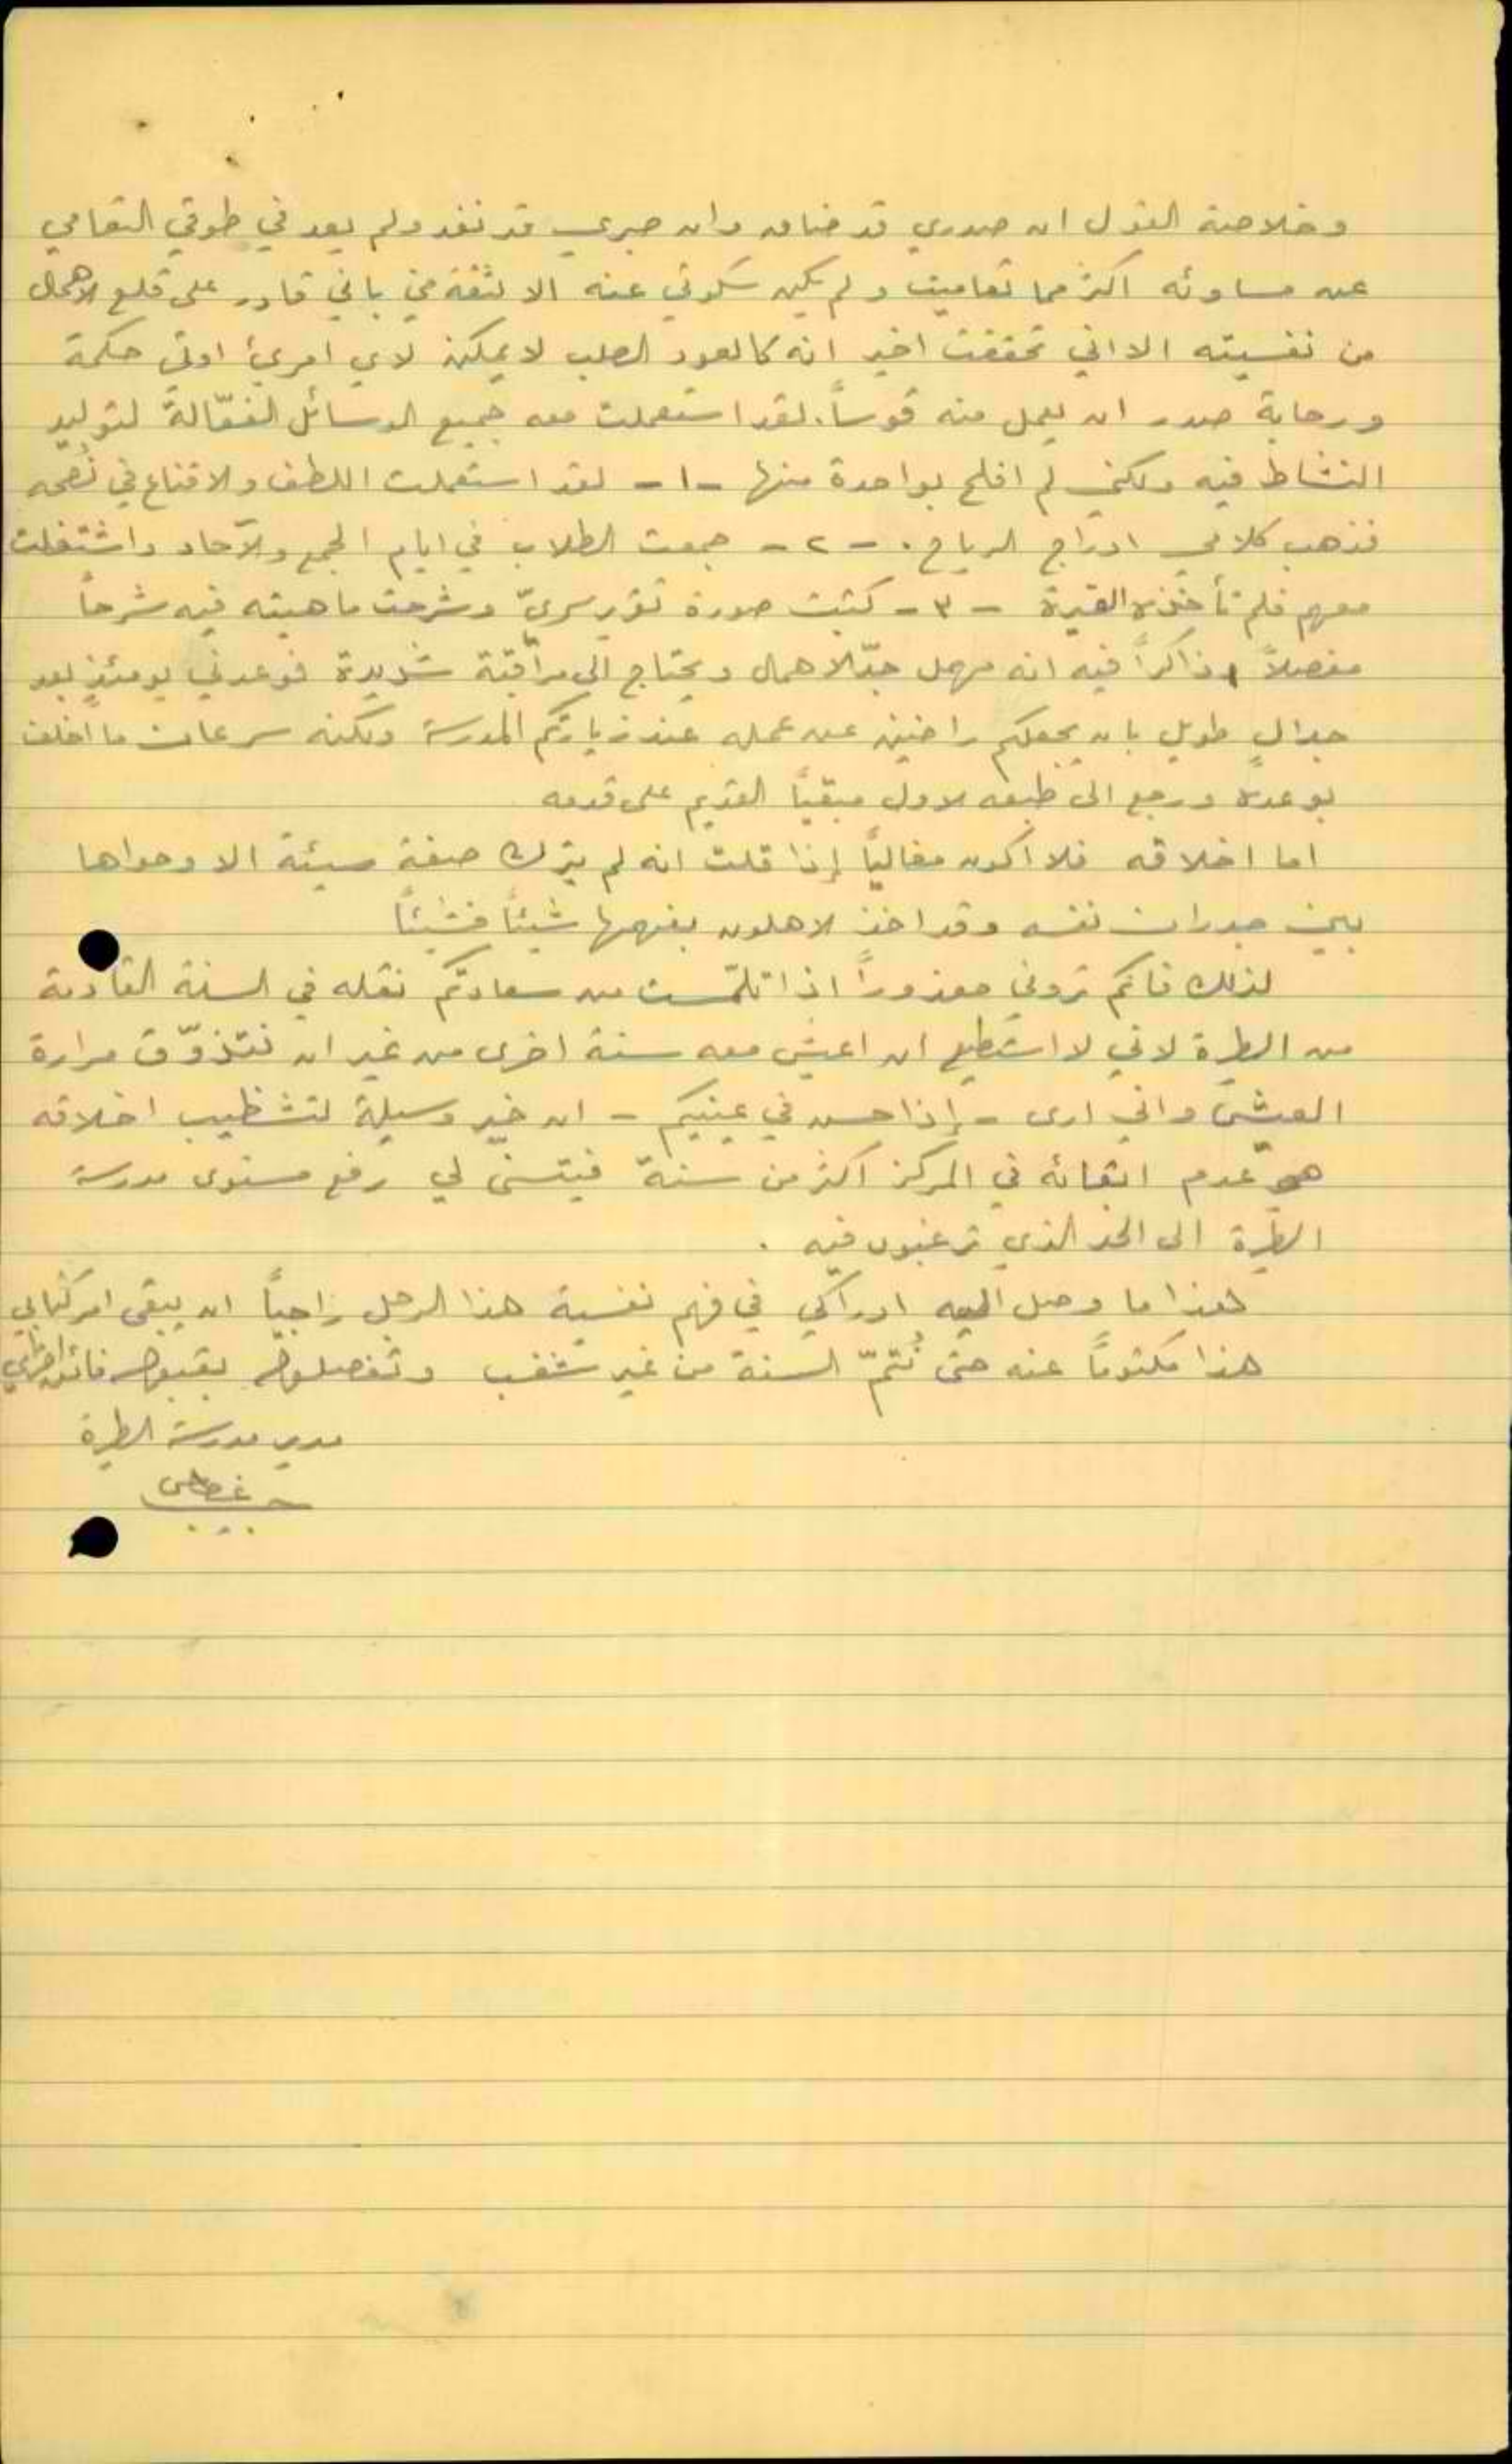 وخلاصة القول ان صدري قد ضاق وان صبري قد نفد ولم يعد في طوقي التعامي
عن مساوئه اكثر مما تعاميت ولم يكن سكوتي عنه الا لثقة مني باني قادر على قلع الاهمال
من نفسيته الا اني تحققت اخير انه كالعود الصلب لا يمكن لاي امرئ اوتي حكمة
ورحابة صدر ان يعمل منه قوساً. لقد استعملت معه جميع الوسائل الفعّالة لتوليد
النشاط فيه ولكني لم افلح بواحدة منها -١- لقد استعملت اللطف والاقناع في نُصحه
فذهب كلامي ادراج الرياح. -٢- جمعت الطلاب في ايام الجمع والآحاد واشتغلت
معهم فلم تأخذه الغيرة -٣- كتبت صورة تقرير سريّ وشرحت ماهيته فيه شرحاً
مفصلاً وذاكراً فيه انه مهمل جدّ الاهمال ويحتاج الى مراقبة شديدة فوعدني يومئذٍ بعد
جدالٍ طويل بان يجعلكم راضين عن عمله عند زيارتكم المدرسة ولكنه سرعان ما اخلف
بوعده ورجع الى طبعه الاول مبقياً القديم على قدمه
اما اخلاقه فلا اكون مغالياً إذا قلت انه لم يترك صفة سيئة الا وحواها
بين جدران نفسه وقد اخذ الاهلون يفهمها شيئاً فشيئاً
لذلك فانكم تروني معذوراً اذا تلمّست من سعادتكم نقله في السنة القادمة
من الطيرة لاني لا استطيع ان اعيش معه سنة اخرى من غير ان نتذوّق مرارة
العيش واني ارى - إذا حسن في عينيكم - ان خير وسيلة لتشظيب اخلاقه
هو عدم ابقائه في المركز اكثر من سنة فيتسنى لي رفع مستوى مدرسة
الطيرة الى الحد الذي ترغبون فيه .
هذا ما وصل اليه ادراكي في فهم نفسية هذا الرجل راجياً ان يبقى امر كتابي
هذا مكتوماً عنه حتى نُتمّ السنة من غير شغب وتفضلوا بقبول فائق احترامي
مدير مدرسة الطيرة